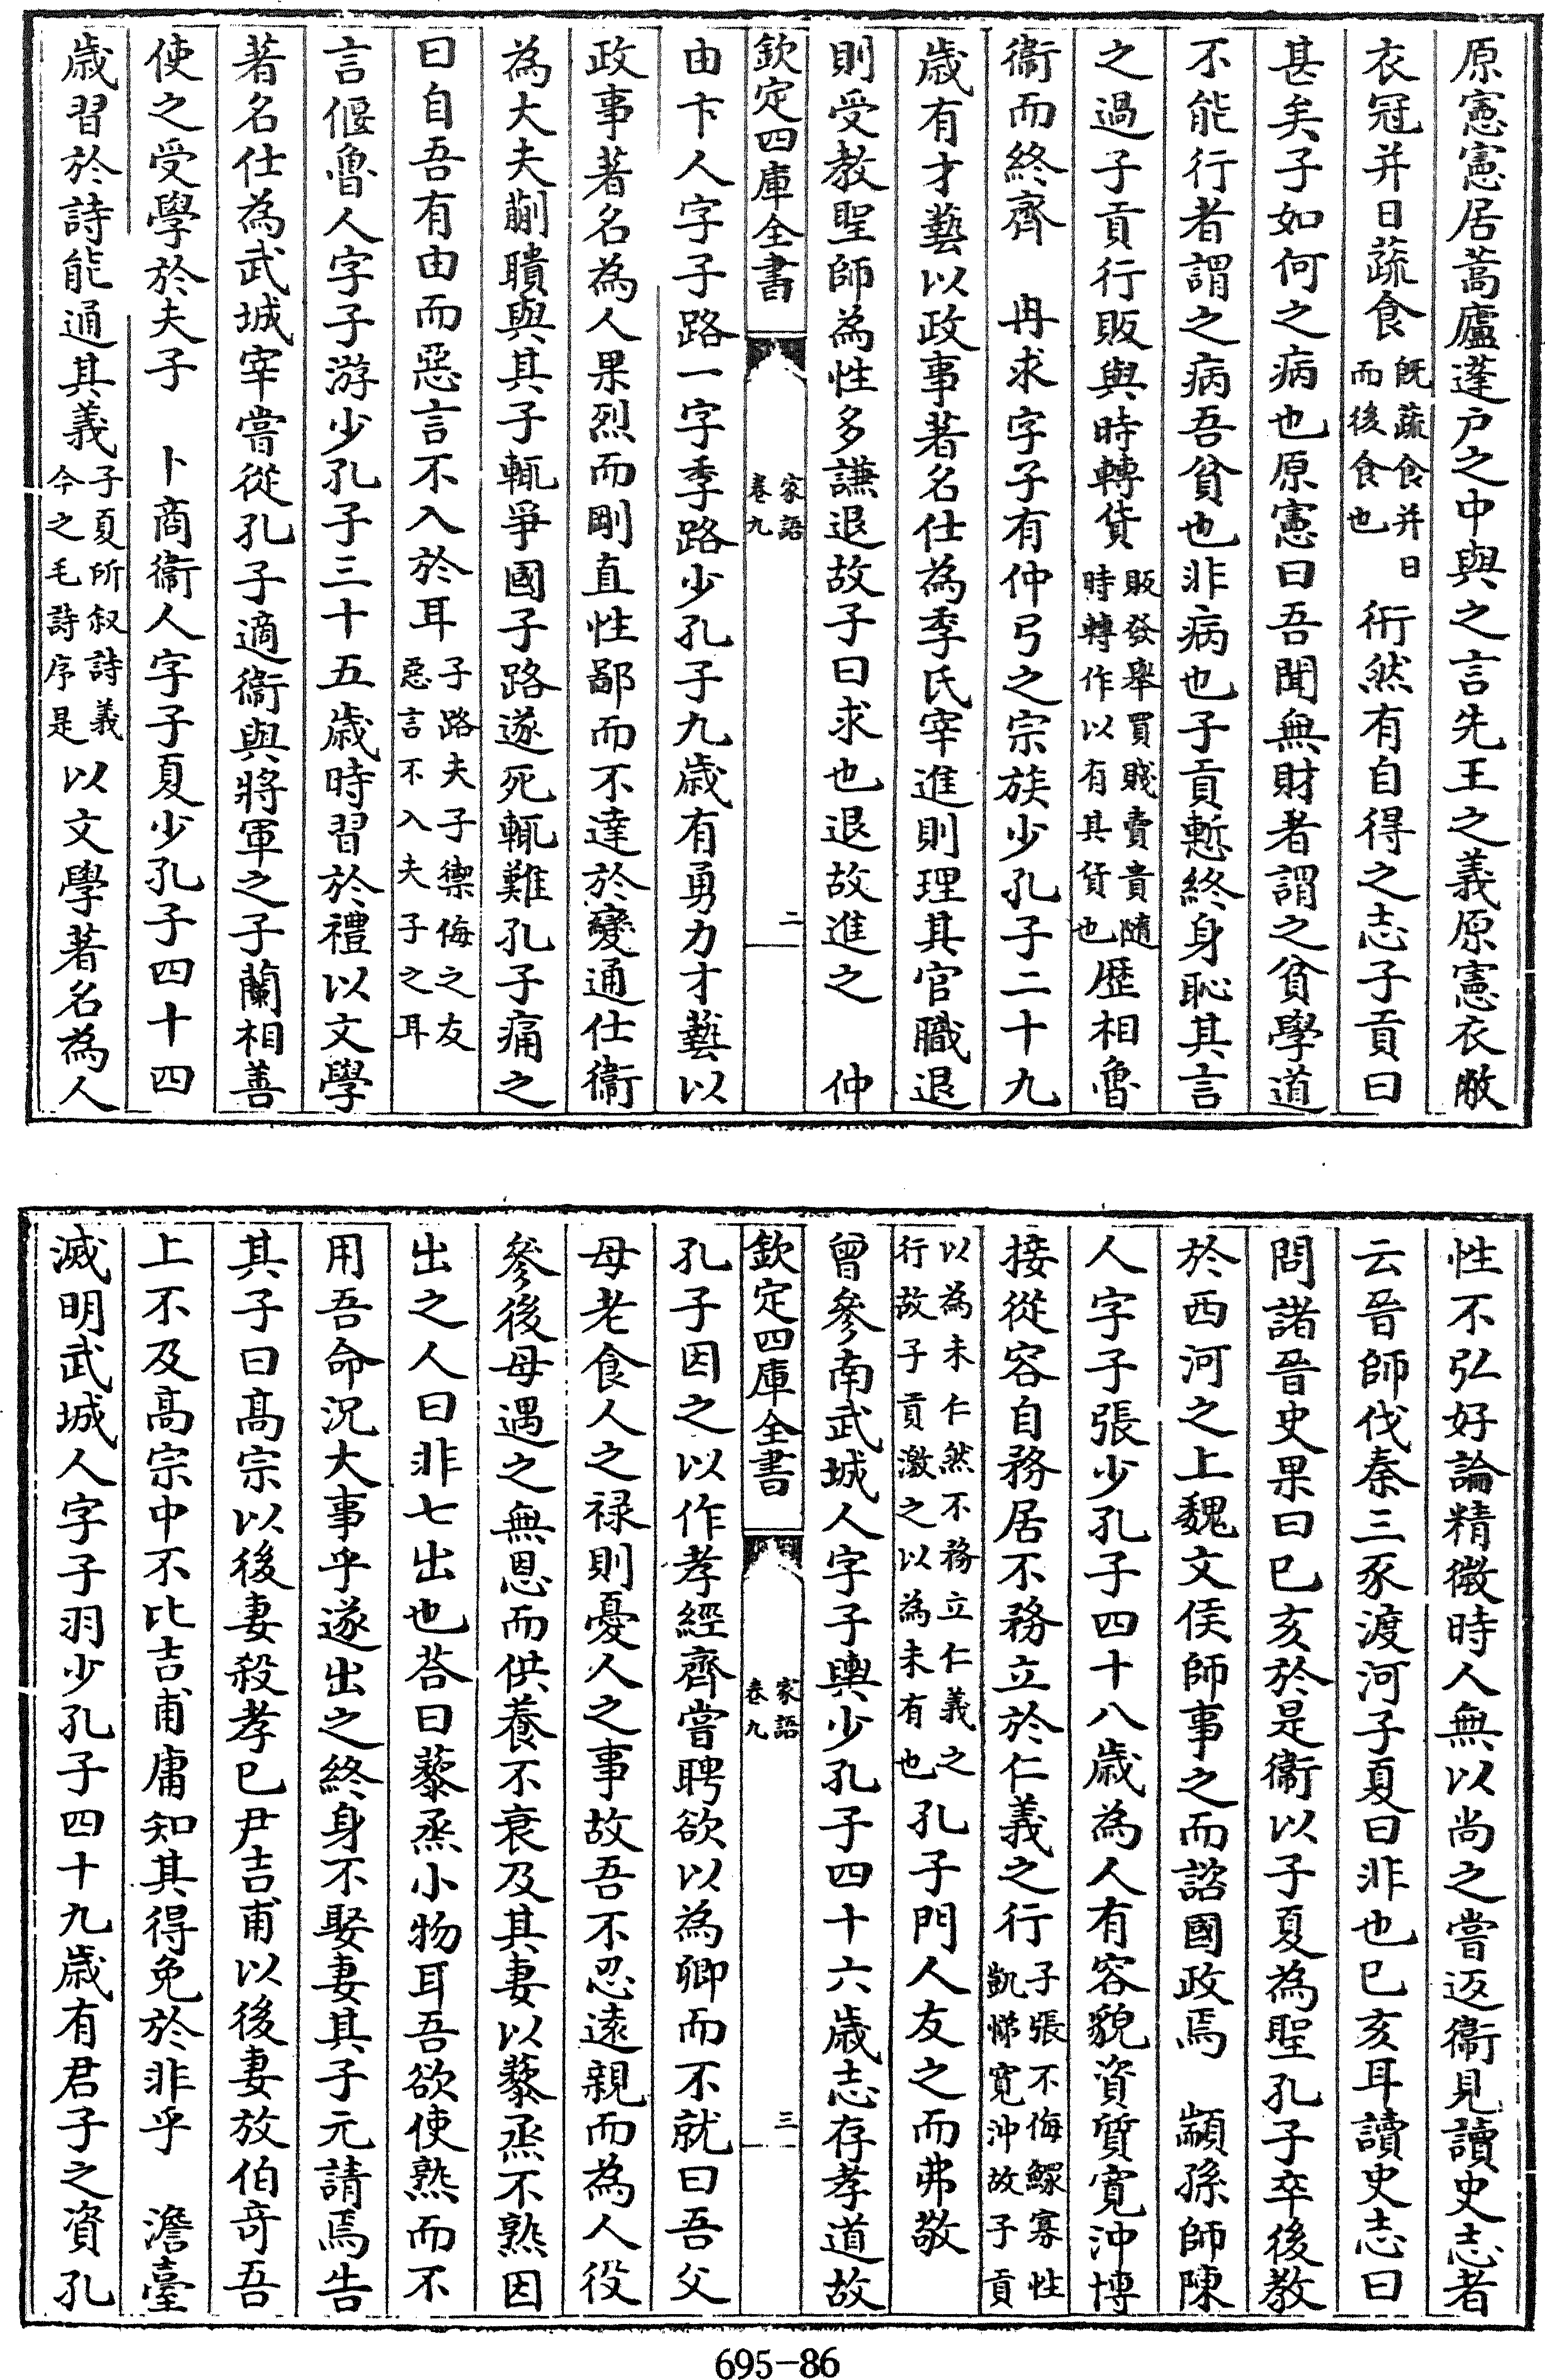 原憲憲居蒿廬蓬户之中與之言先王之義原憲衣敝
衣冠并日蔬食既蔬食并日而後食也衎然有自得之志子貢曰
甚矣子如何之病也原憲曰吾聞無財者謂之貧學道
不能行者謂之病吾貧也非病也子貢慙終身恥其言
之過子貢行販與時轉貨販發舉買賤賣貴隨時轉作以有其貨也歴相魯
衞而終齊　冉求字子有仲弓之宗族少孔子二十九
歳有才藝以政事著名仕為季氏宰進則理其官職退
則受教聖師為性多謙退故子曰求也退故進之　仲
欽定四庫全書　家語卷九　二
由卞人字子路一字季路少孔子九歳有勇力才藝以
政事著名為人果烈而剛直性鄙而不達於變通仕衞
為大夫蒯聵與其子輒爭國子路遂死輒難孔子痛之
曰自吾有由而惡言不入於耳子路夫子禦侮之友惡言不入夫子之耳
言偃魯人字子游少孔子三十五歳時習於禮以文學
著名仕為武城宰嘗從孔子適衞與將軍之子蘭相善
使之受學於夫子　卜商衞人字子夏少孔子四十四
歳習於詩能通其義子夏所叙詩義今之毛詩序是以文學著名為人
性不弘好論精微時人無以尚之嘗返衞見讀史志者
云晉師伐秦三豕渡河子夏曰非也己亥耳讀史志曰
問諸晉史果曰己亥於是衞以子夏為聖孔子卒後教
於西河之上魏文侯師事之而諮國政焉　顓孫師陳
人字子張少孔子四十八歳為人有容貌資質寛沖博
接從容自務居不務立於仁義之行子張不侮鰥寡性凱悌寛沖故子貢
以為未仁然不務立仁義之行故子貢激之以為未有也孔子門人友之而弗敬
曾參南武城人字子輿少孔子四十六歳志存孝道故
欽定四庫全書　家語卷九　三
孔子因之以作孝經齊嘗聘欲以為卿而不就曰吾父
母老食人之禄則憂人之事故吾不忍遠親而為人役
參後母遇之無恩而供養不衰及其妻以藜烝不熟因
出之人曰非七出也荅曰藜烝小物耳吾欲使熟而不
用吾命況大事乎遂出之終身不娶妻其子元請焉告
其子曰髙宗以後妻殺孝已尹吉甫以後妻放伯竒吾
上不及髙宗中不比吉甫庸知其得免於非乎　澹臺
滅明武城人字子羽少孔子四十九歳有君子之資孔
695-86